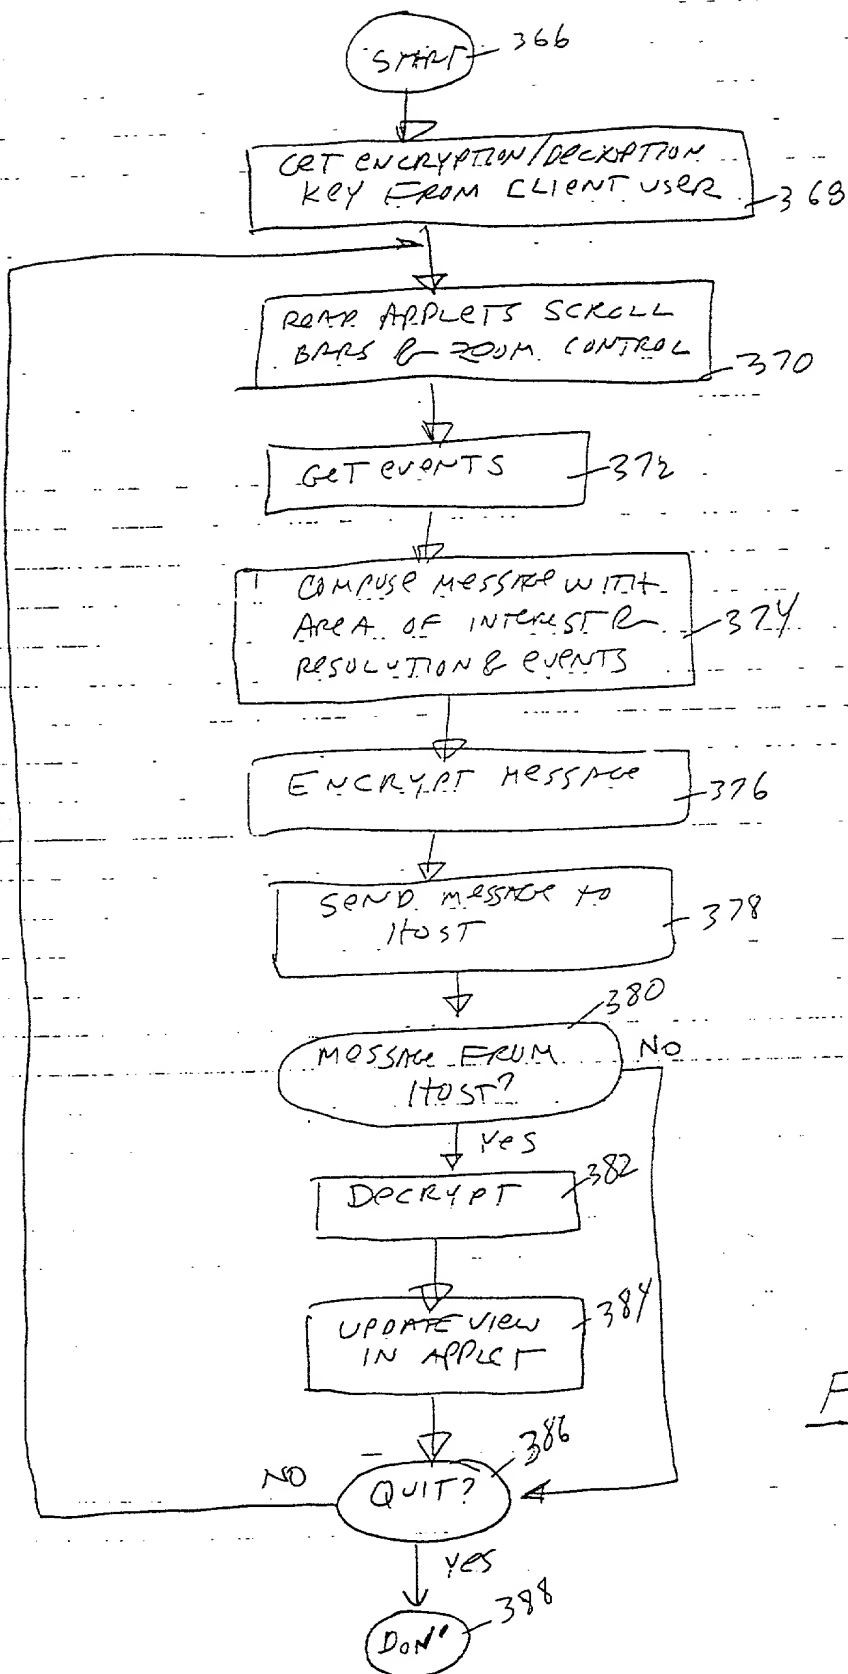 START 366
GET ENCRYPTION/DECRYPTION
KEY FROM CLIENT USER 368
READ APPLETS SCROLL
BARS & ZOOM CONTROL 370
GET EVENTS 372
COMPOSE MESSAGE WITH
AREA OF INTEREST &
RESOLUTION & EVENTS 374
ENCRYPT MESSAGE 376
SEND MESSAGE TO
HOST 378
380
MESSAGE FROM
HOST?
NO
YES
DECRYPT 382
UPDATE VIEW
IN APPLET 384
386
NO
QUIT?
YES
388
F